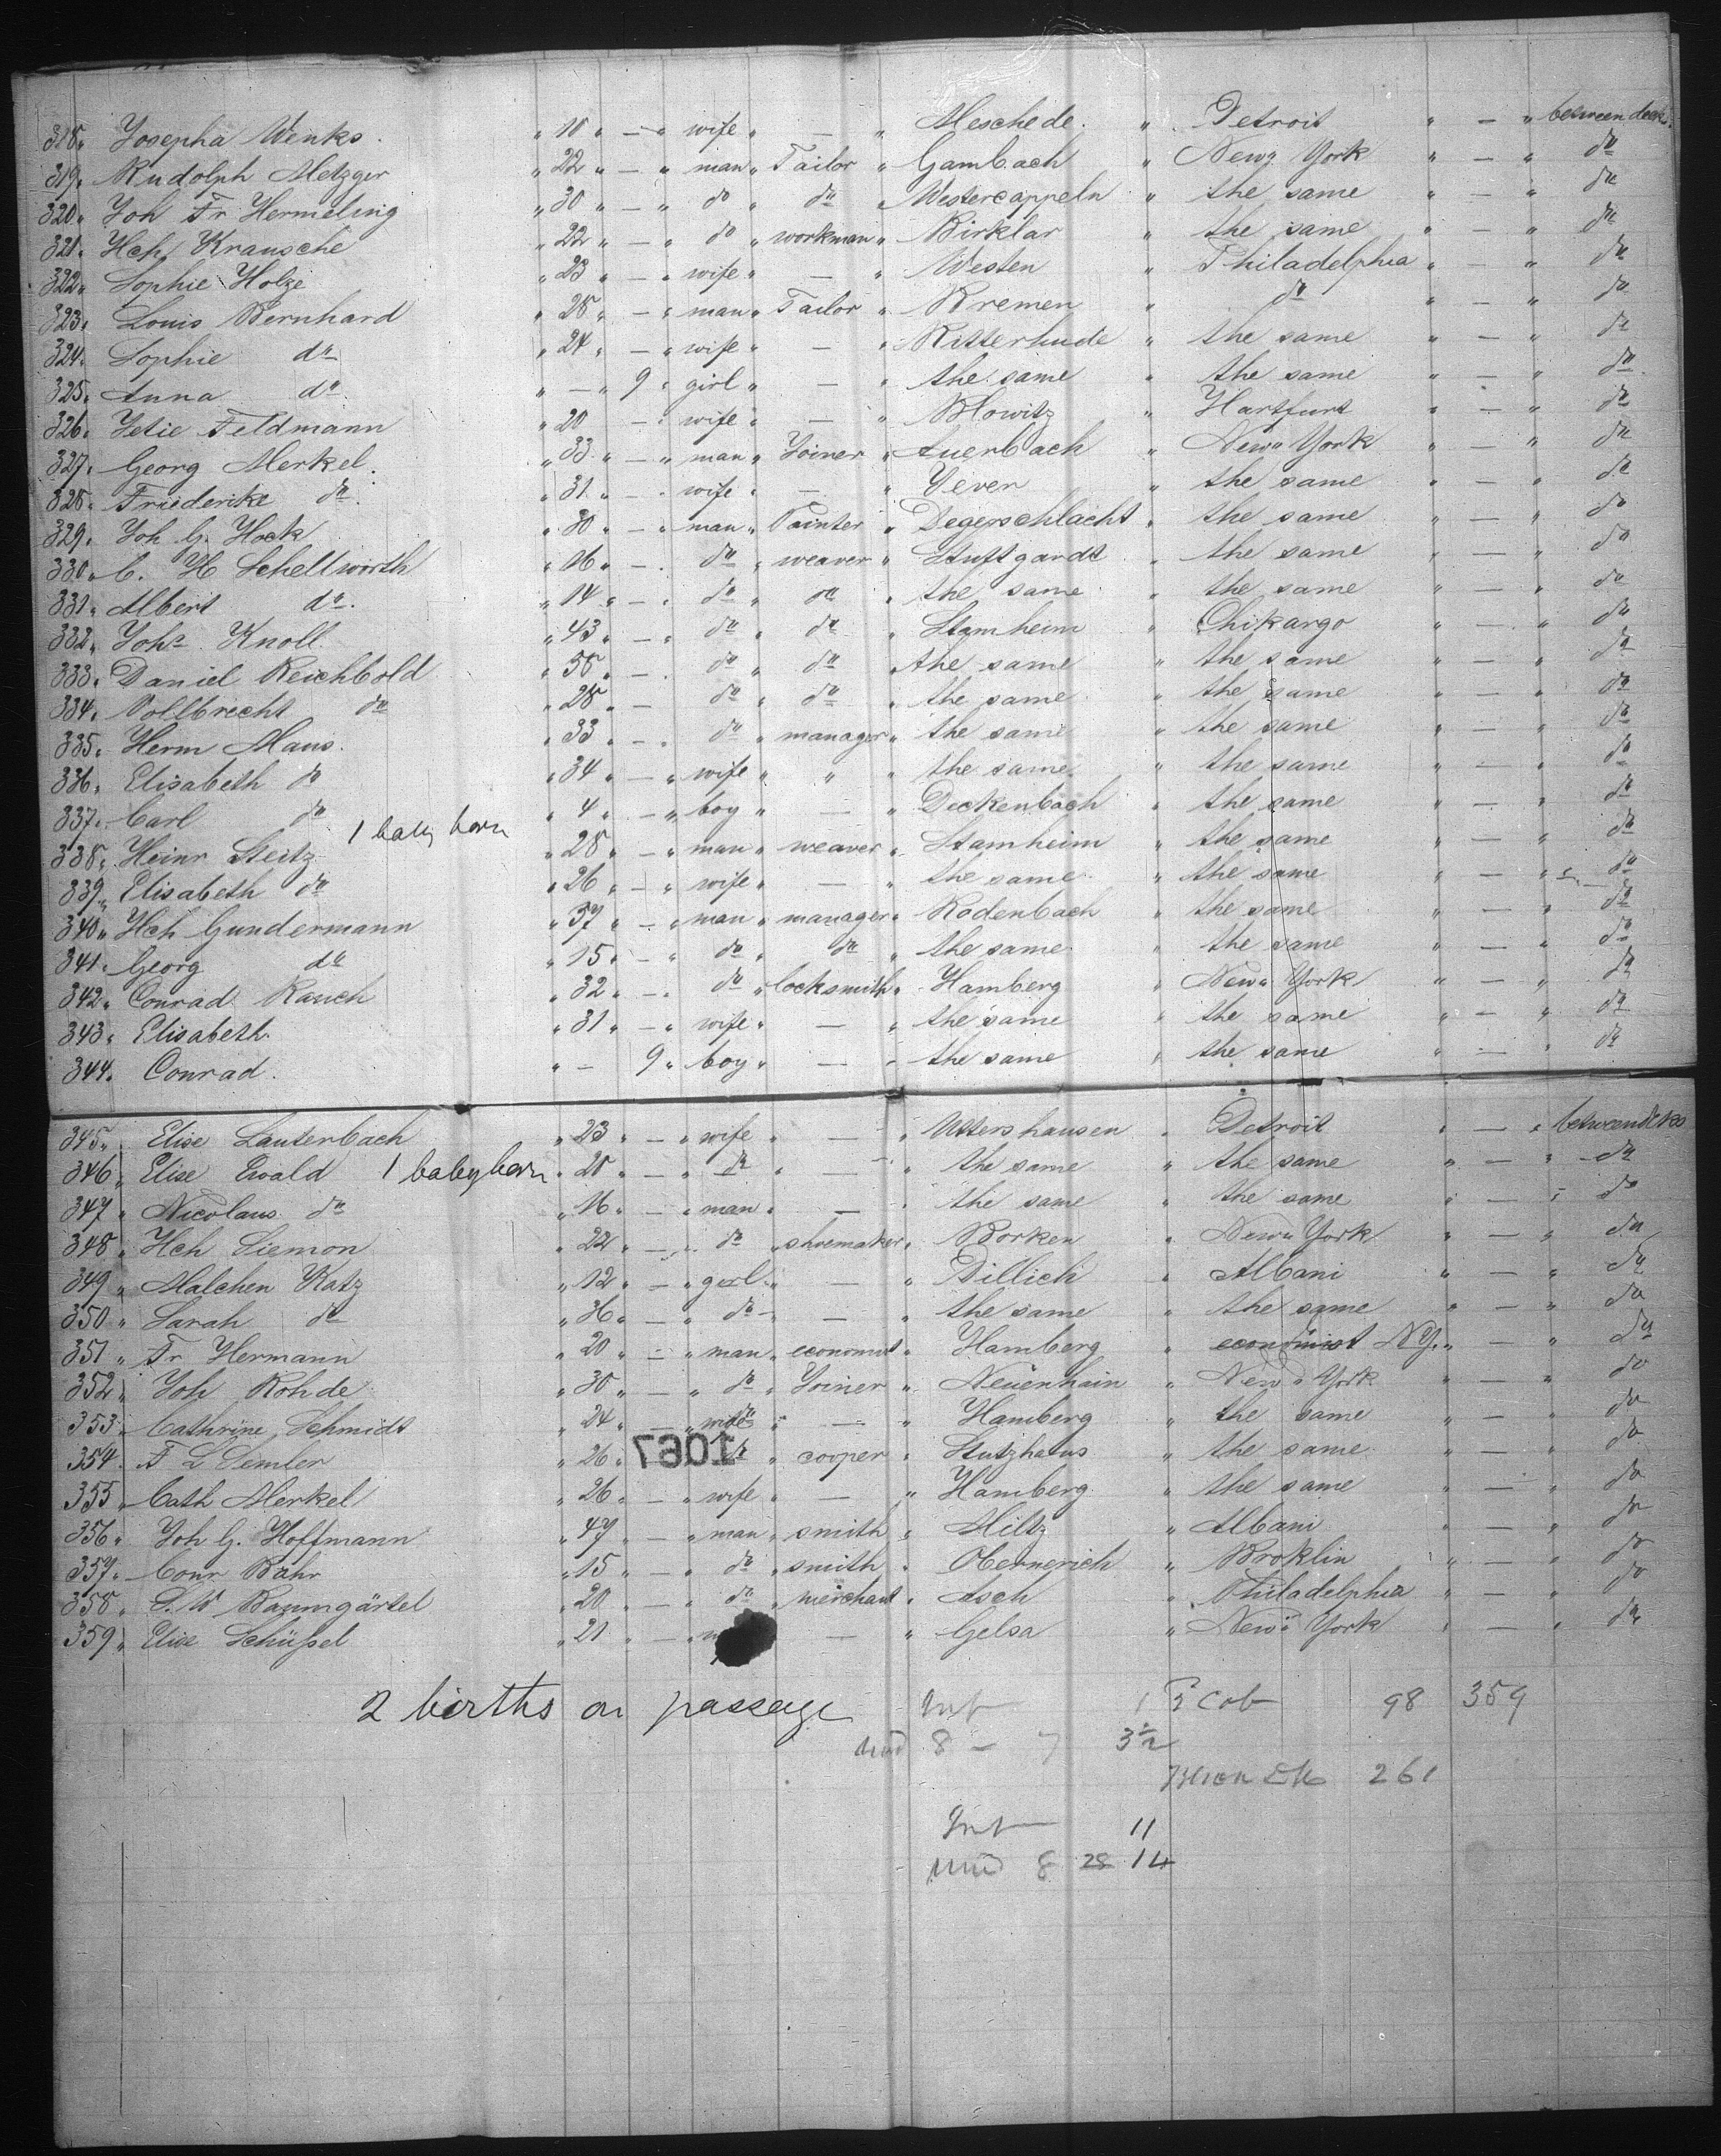 318 " Josepha Wenks. " 18 " — " wife " — " Meschede. " Detroit " — " between deck.
319 " Rudolph Metzger " 22 " — " man " Tailor " Gambach " New York " — " do
320 " Joh Fr Hermeling " 30 " — " do " do " Westercappeln " the same " — " do
321 " Hch Krausche " 22 " — " do " workman " Birklar " the same " — " do
322 " Sophie Holze " 23 " — " wife " — " Westen " Philadelphia " — " do
323 " Louis Bernhard " 28 " — " man " Tailor " Bremen " do " — " do
324 " Sophie do " 24 " — " wife " — " Ritterhude " the same " — " do
325 " Anna do " — " 9 " girl " — " the same " the same " — " do
326 " Jetie Feldmann " 20 — " wife " — " Blowitz " Hartfurt " — " do
327 " Georg Merkel. " 33 " — " man " Joiner " Auerbach " New York " — " do
328 " Friederike do. " 31 " — " wife " — " Jever " the same " — " do
329 " Joh G. Hock " 30 " — " man " Painter " Degerschlacht " the same " — " do
330 " C. H Schellworth " 16 " — " do " weaver " Stuttgardt " the same " — " do
331 " Albert do. " 14 " — " do " do " the same " the same " — " do
332 " Johs Knoll. " 43 " — " do " do " Stamheim " Chikargo " — " do
333 " Daniel Reichbold " 58 " — " do " do " the same " the same " — " do
334 " Vollbrecht do " 28 " — do " do " the same " the same " — " do
335 " Herm Maus. " 33 " — " do " manager " the same " the same " — " do
336 " Elisabeth do " 34 " — " wife " " " the same " the same " — " do
337 " Carl do " 4 " — " boy " — " Deckenbach " the same " — " do
338 " Heinr Steitz 1 baby born " 28 " — " man " weaver " Stamheim " the same " — " do
339 " Elisabeth do " 26 " — " wife " — " the same " the same " — " do
340 " Hch Gundermann " 37 " — " man " manager " Rodenbach " the same " — " do
341 " Georg do " 15 " — " do " do " the same " the same " — " do
342 " Conrad Rauch " 32 " — " do " locksmith " Hamberg " New York " — " do
343 " Elisabeth. " 31 " — " wife " — " the same " the same " — " do
344 " Conrad. " — 9 " boy " — " the same " the same " — " do
345 " Elise Lauterbach " 23 " — " wife " — " Uttershausen " Detroit " — " betweendeks
346 " Elise Ewald 1 baby born " 20 " — " do " — " the same " the same " — " do
347 " Nicolaus do " 16 " — " man " — " the same " the same " — " do
348 " Hch Siemon " 22 " — " do " shoemaker " Borken " New York " — " do
349 " Malchen Katz " 12 " — " gerl " — " Dillich " Albani " — " do
350 " Sarah do " 36 " — " do " — " the same " the same " — " do
351 " Fr Hermann " 20 " — " man " economist " Hamberg " economist NY. " — " do
352 " Joh Rohde " 30 " — " do " Joiner " Neuenhain " New York " — " do
353 " Cathrine Schmidt " 24 " — " wife " — " Hamberg " the same " — " do
354 " F L Semler " 26 " 1067 " cooper " Stutzhaus " the same " — " do
355 " Cath Merkel " 26 " — " wife " — " Hamberg " the same " — " do
356 " Joh G. Hoffmann " 47 " — " man " smith " Miltz " Albani " — " do
357 " Conr Bähr " 15 " — " do " smith " " Broklin " — " do
358 " Baumgärtel " 20 " — " do " merchant " Asch " Philadelphia " — " do
359 " Elise Schüßel " 21 " — " — " Gelsa " New York " — " do
2 births on passage Inf 1 98 359
8 — 7 3
261
Inf 11
8 28 14